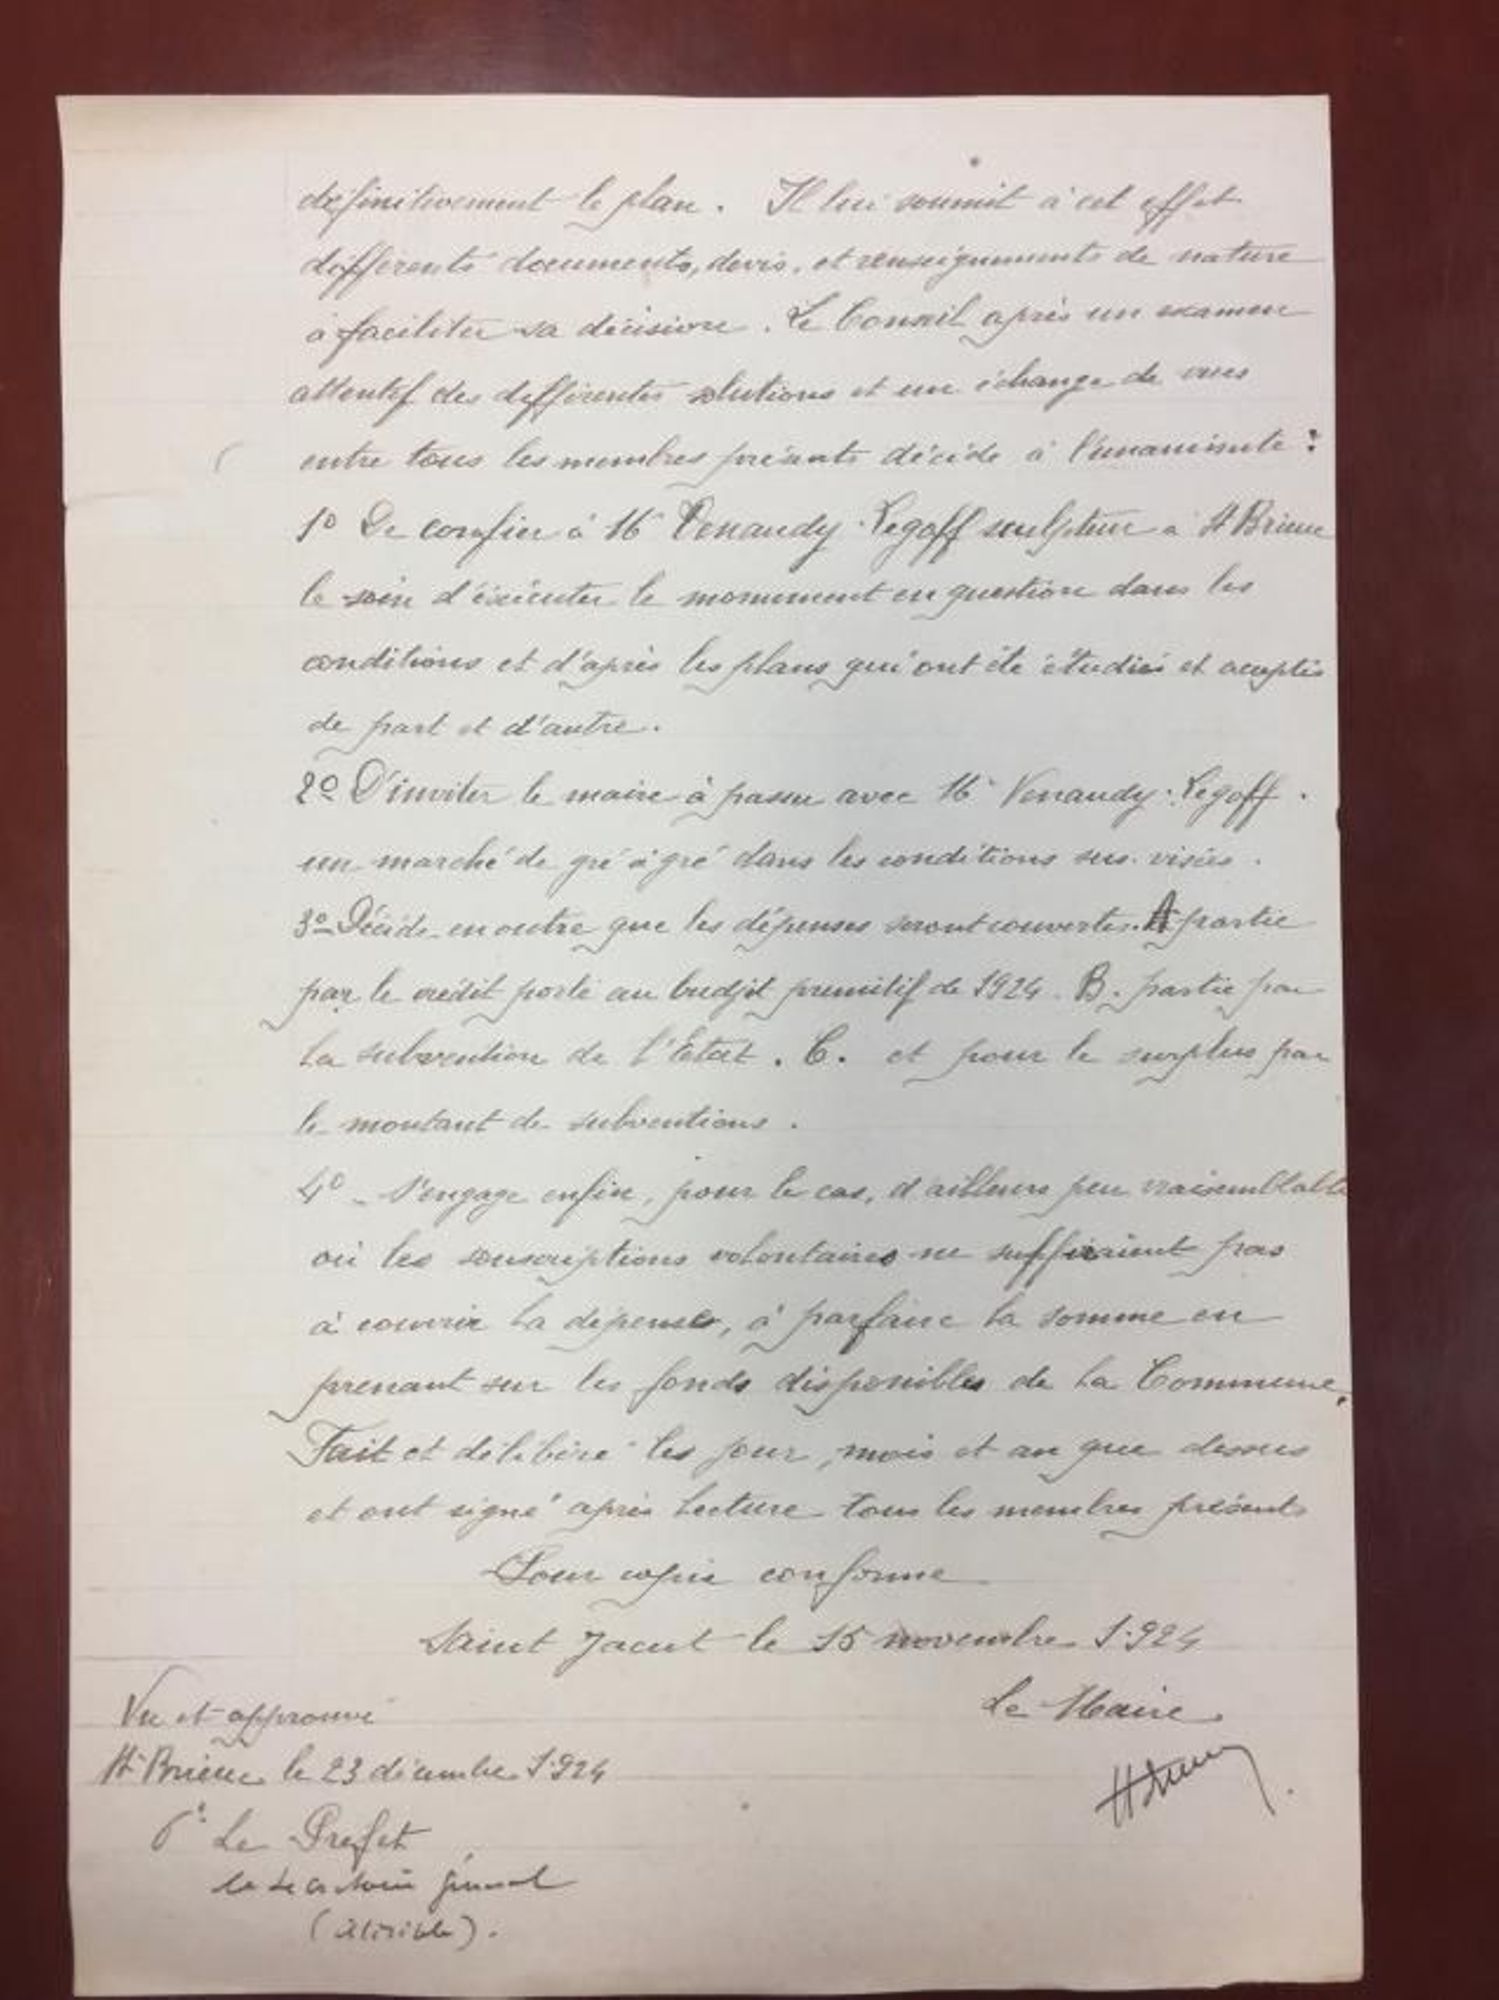 définitivement le plan. Il lui soumit à cet effet
différents documents, devis, et renseignements de nature
à faciliter sa décision. Le Conseil après un examen
attentif des différentes solutions et un échange de vues
entre tous les membres présents décide à l'unanimité :
1º De confier à Mr Venaudy-Legoff sculpteur à St Brieuc
le soin d'éxécuter le monument en question dans les
conditions et d'après les plans qui ont été étudiés et acceptés
de part et d'autre.
2º D'inviter le maire à passer avec Mr Venaudy-Legoff.
un marché de gré à gré dans les conditions sus-visées.
3º Décide en outre que les dépenses seront couvertes. A partie
par le crédit porté au budjet primitif de 1924. B. partie par
la subvention de l'Etat. C. et pour le surplus par
le montant de subventions.
4º - S'engage enfin, pour le cas, d'ailleurs peu vraisemblable
où les souscriptions volontaires ne suffiraient pas
à couvrir la dépense, à parfaire la somme en
prenant sur les fonds disponibles de la Commune.
Fait et délibéré les jour, mois et an que dessus
et ont signé après lecture tous les membres présents
Pour copie conforme
Saint Jacut le 15 novembre 1924
Le Maire
Vu et approuvé
St Brieuc le 23 décembre 1924
Pr Le Prefet
le secrétaire général
(illisible).